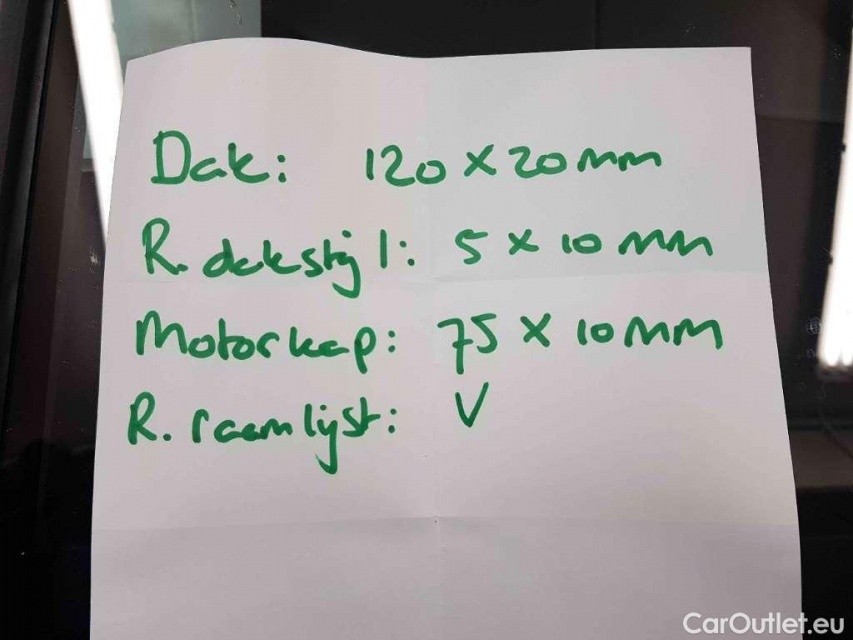 Dak: 120 x 20 mm
R. dakstijl: 5 x 10 mm
Motorkap: 75 x 10 mm
R. raamlijst: V
CarOutlet.eu